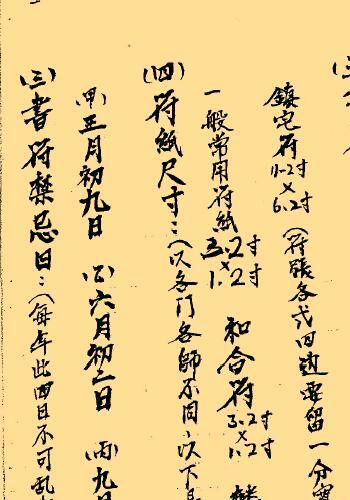 鎮宅符 11.2寸×6.2寸 (符張各式四邊要留一分
一般常用符紙 3.2寸×1.2寸 和合符 3.2寸×1.2寸
(四)符紙尺寸:(以各門各師不同,以下
(甲)正月初九日 (乙)六月初二日 (丙)九
(三)書符禁忌日:(每年此四日不可亂